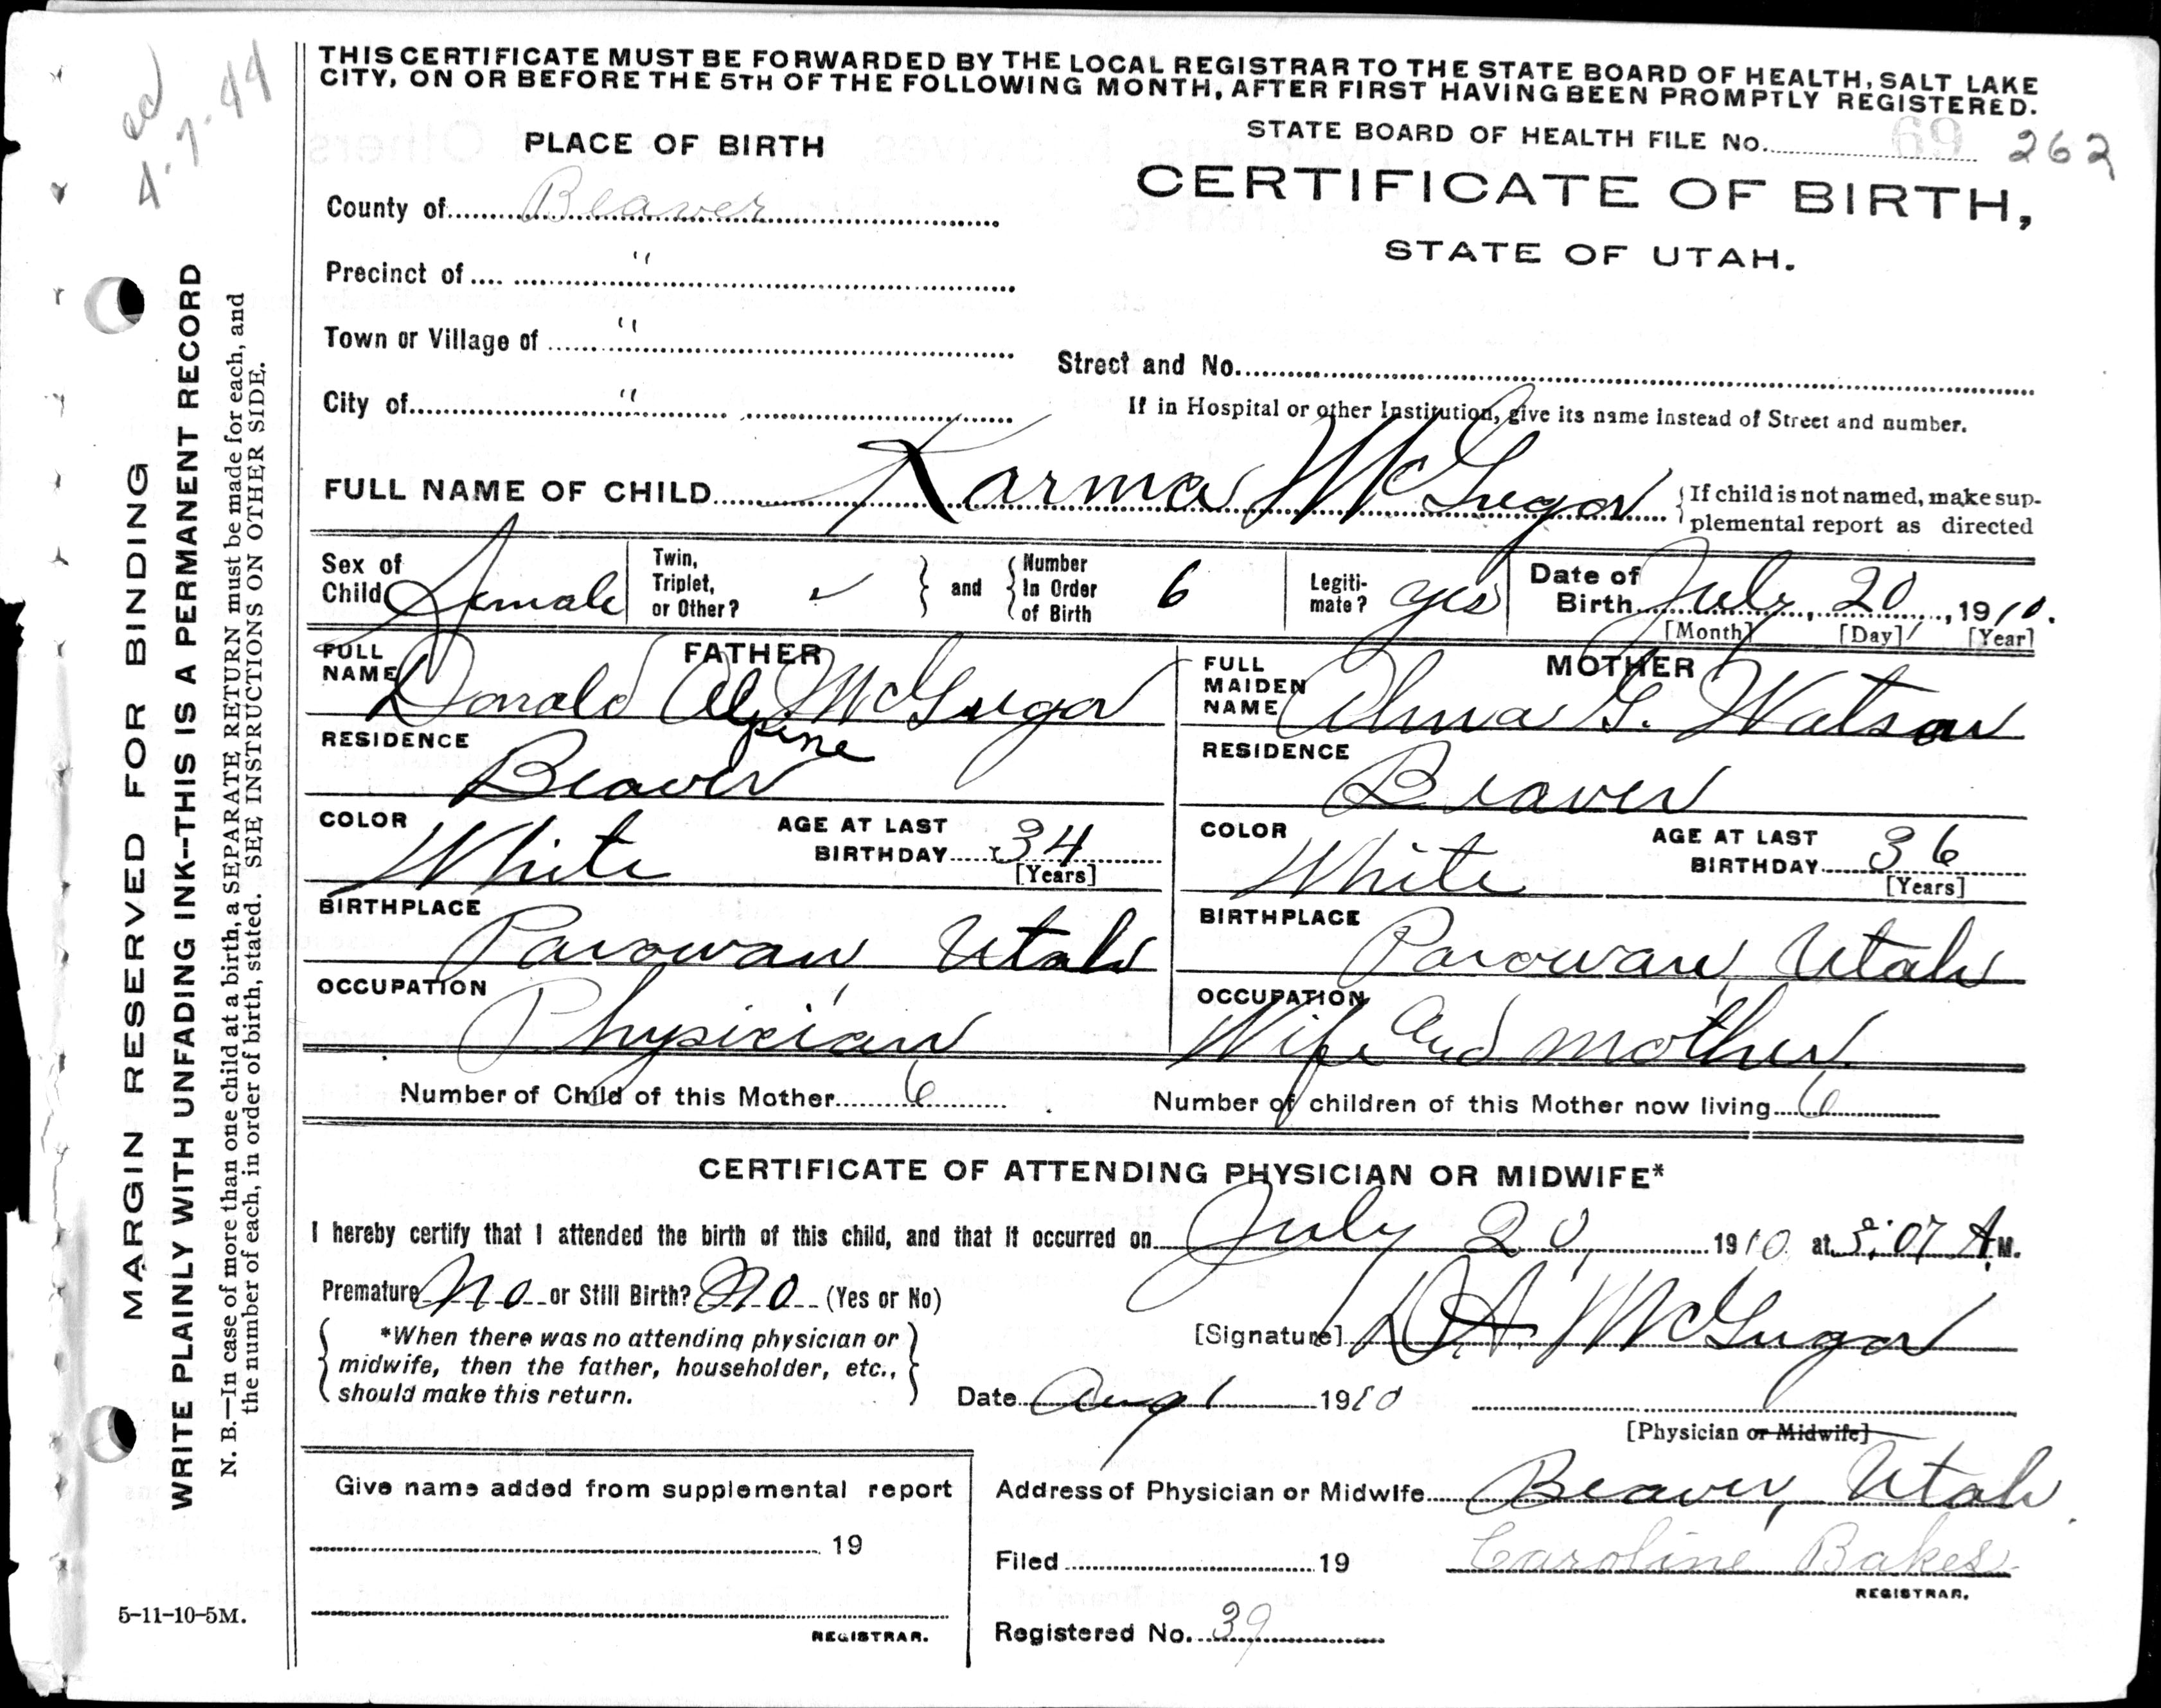 ed
4-7-44
THIS CERTIFICATE MUST BE FORWARDED BY THE LOCAL REGISTRAR TO THE STATE BOARD OF HEALTH, SALT LAKE
CITY, ON OR BEFORE THE 5TH OF THE FOLLOWING MONTH, AFTER FIRST HAVING BEEN PROMPTLY REGISTERED.
STATE BOARD OF HEALTH FILE No. 69 262
PLACE OF BIRTH
CERTIFICATE OF BIRTH,
STATE OF UTAH.
County of Beaver
Precinct of "
Town or Village of "
Street and No.
City of "
If in Hospital or other Institution, give its name instead of Street and number.
FULL NAME OF CHILD Karma McGregor
{If child is not named, make sup-
plemental report as directed
Sex of Child Female
Twin, Triplet, or Other? ✓ } and { Number In Order of Birth 6
Legiti-mate? yes
Date of Birth July, 20, 1910.
[Month] [Day] [Year]
FATHER
FULL NAME Donald Alpine McGregor
MOTHER
FULL MAIDEN NAME Alma G. Watson
RESIDENCE Beaver
RESIDENCE Beaver
COLOR White AGE AT LAST BIRTHDAY 34 [Years]
COLOR White AGE AT LAST BIRTHDAY 36 [Years]
BIRTHPLACE Parowan Utah
BIRTHPLACE Parowan, Utah
OCCUPATION Physician
OCCUPATION Wife and mother
Number of Child of this Mother 6
Number of children of this Mother now living 6
CERTIFICATE OF ATTENDING PHYSICIAN OR MIDWIFE*
I hereby certify that I attended the birth of this child, and that it occurred on July 20, 1910 at :07 A.M.
Premature No or Still Birth? No (Yes or No)
{ *When there was no attending physician or
midwife, then the father, householder, etc.,
should make this return. }
[Signature] D.A. McGregor
Date Aug 1 1910
[Physician or Midwife]
Give name added from supplemental report
19
REGISTRAR.
Address of Physician or Midwife Beaver, Utah
Filed 19 Caroline Bakes
REGISTRAR.
Registered No. 39
MARGIN RESERVED FOR BINDING
WRITE PLAINLY WITH UNFADING INK--THIS IS A PERMANENT RECORD
N. B.—In case of more than one child at a birth, a SEPARATE RETURN must be made for each, and
the number of each, in order of birth, stated. SEE INSTRUCTIONS ON OTHER SIDE.
5-11-10-5M.